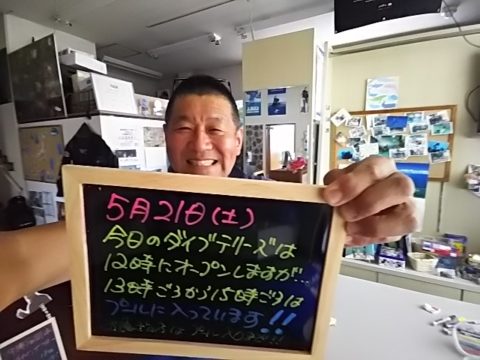 5月21日(土)
今日のダイブテリーズは
12時にオープンしますが…
13時ごろから15時ごろは
プールに入っています!!